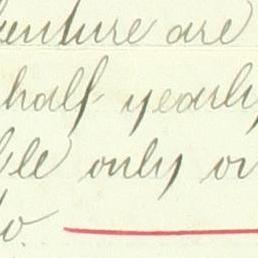 enture are
half yearly
ble only on
to